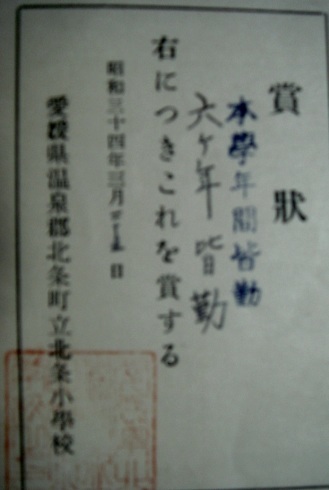 賞狀
本學年間皆勤
六ヶ年皆勤
右につきこれを賞する
昭和三十四年三月二十 日
愛媛県温泉郡北条町立北条小學校